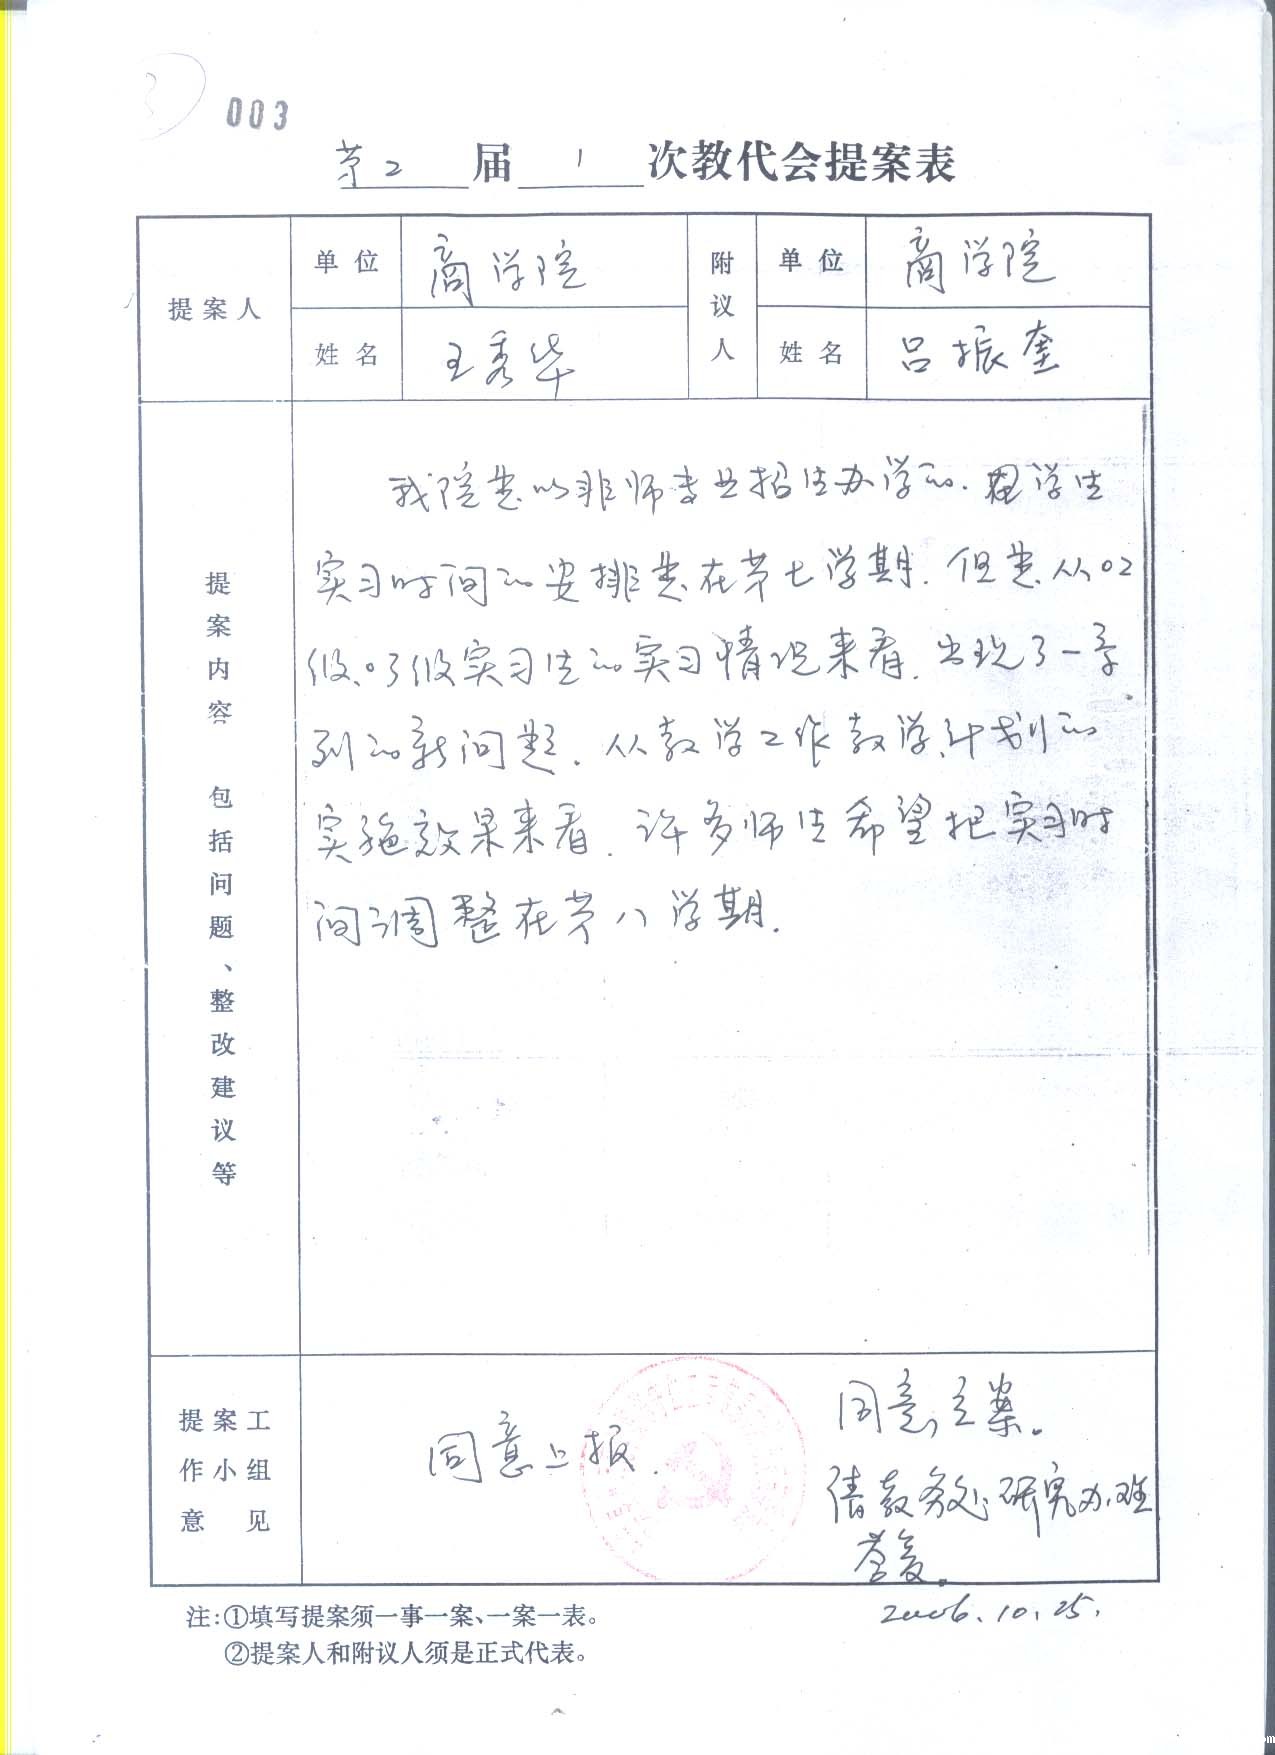 003
第2届1次教代会提案表
提案人
单位
商学院
姓名
王秀华
附议人
单位
商学院
姓名
吕振奎
提案内容 包括问题、整改建议等
我院是以非师专业招生办学的.
学生
实习时间的安排是在第七学期.但是从02
级、03级实习生的实习情况来看.出现了一系
列的新问题.从教学工作教学计划的
实施效果来看.许多师生希望把实习时
间调整在第八学期.
提案工
作小组
意见
同意上报.
同意立案。
请教务处研究办理
答复。
2006.10.25.
注:①填写提案须一事一案、一案一表。
②提案人和附议人须是正式代表。